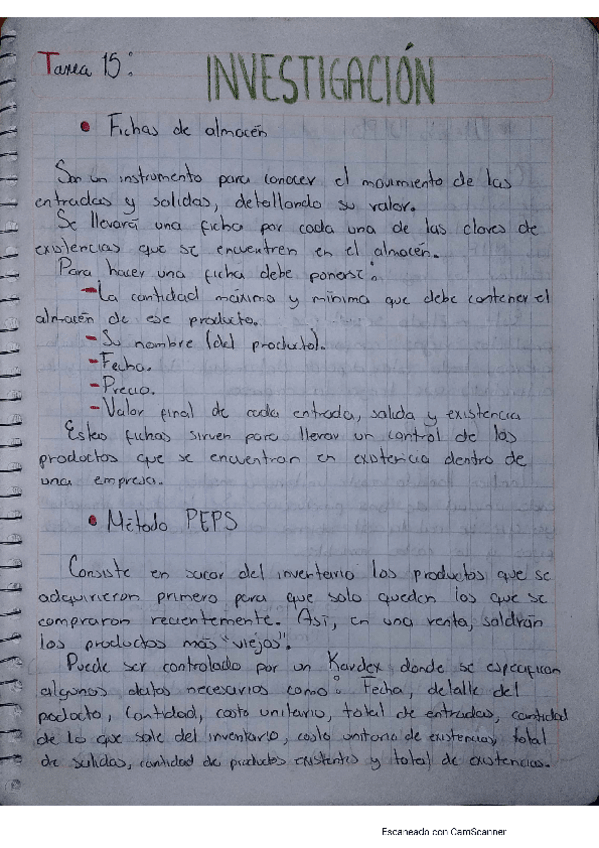 Tarea 15: INVESTIGACIÓN
• Fichas de almacén
Son un instrumento para conocer el movimiento de las
entradas y salidas, detallando su valor.
Se llevará una ficha por cada una de las claves de
existencias que se encuentren en el almacén.
Para hacer una ficha debe ponerse:
-La cantidad máxima y mínima que debe contener el
almacén de ese producto.
-Su nombre (del producto).
-Fecha.
-Precio.
-Valor final de cada entrada, salida y existencia
Estas fichas sirven para llevar un control de los
productos que se encuentran en existencia dentro de
una empresa.
• Método PEPS
Consiste en sacar del inventario los productos que se
adquirieron primero para que solo queden los que se
compraron recientemente. Así, en una venta, saldrán
los productos más "viejos".
Puede ser controlado por un Kardex donde se especifican
algunos datos necesarios como: Fecha, detalle del
poducto, cantidad, costo unitario, total de entradas, cantidad
de lo que sale del inventario, costo unitario de existencias, total
de salidas, cantidad de productos existentes y total de existencias.
Escaneado con CamScanner